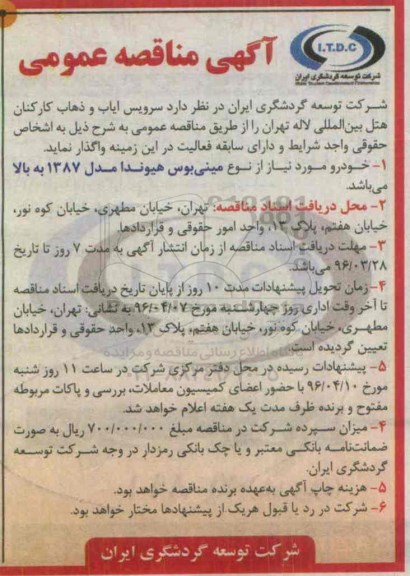 I.T.D.C
شرکت توسعه گردشگری ایران
آگهی مناقصه عمومی
شرکت توسعه گردشگری ایران در نظر دارد سرویس ایاب و ذهاب کارکنان
هتل بین‌المللی لاله تهران را از طریق مناقصه عمومی به شرح ذیل به اشخاص
حقوقی واجد شرایط و دارای سابقه فعالیت در این زمینه واگذار نماید.
۱- خودرو مورد نیاز از نوع مینی‌بوس هیوندا مدل ۱۳۸۷ به بالا
می‌باشد.
۲- محل دریافت اسناد مناقصه: تهران، خیابان مطهری، خیابان کوه نور،
خیابان هفتم، پلاک ۱۳، واحد امور حقوقی و قراردادها.
۳- مهلت دریافت اسناد مناقصه از زمان انتشار آگهی به مدت ۷ روز تا تاریخ
۹۶/۰۳/۲۸ می‌باشد.
۴- زمان تحویل پیشنهادات مدت ۱۰ روز از پایان تاریخ دریافت اسناد مناقصه
تا آخر وقت اداری روز چهارشنبه مورخ ۹۶/۰۴/۰۷ به نشانی: تهران، خیابان
مطهری، خیابان کوه نور، خیابان هفتم، پلاک ۱۳، واحد حقوقی و قراردادها
تعیین گردیده است.
۵- پیشنهادات رسیده در محل دفتر مرکزی شرکت در ساعت ۱۱ روز شنبه
مورخ ۹۶/۰۴/۱۰ با حضور اعضای کمیسیون معاملات، بررسی و پاکات مربوطه
مفتوح و برنده ظرف مدت یک هفته اعلام خواهد شد.
۴- میزان سپرده شرکت در مناقصه مبلغ ۷۰۰/۰۰۰/۰۰۰ ریال به صورت
ضمانت‌نامه بانکی معتبر و یا چک بانکی رمزدار در وجه شرکت توسعه
گردشگری ایران.
۵- هزینه چاپ آگهی به‌عهده برنده مناقصه خواهد بود.
۶- شرکت در رد یا قبول هریک از پیشنهادها مختار خواهد بود.
شرکت توسعه گردشگری ایران